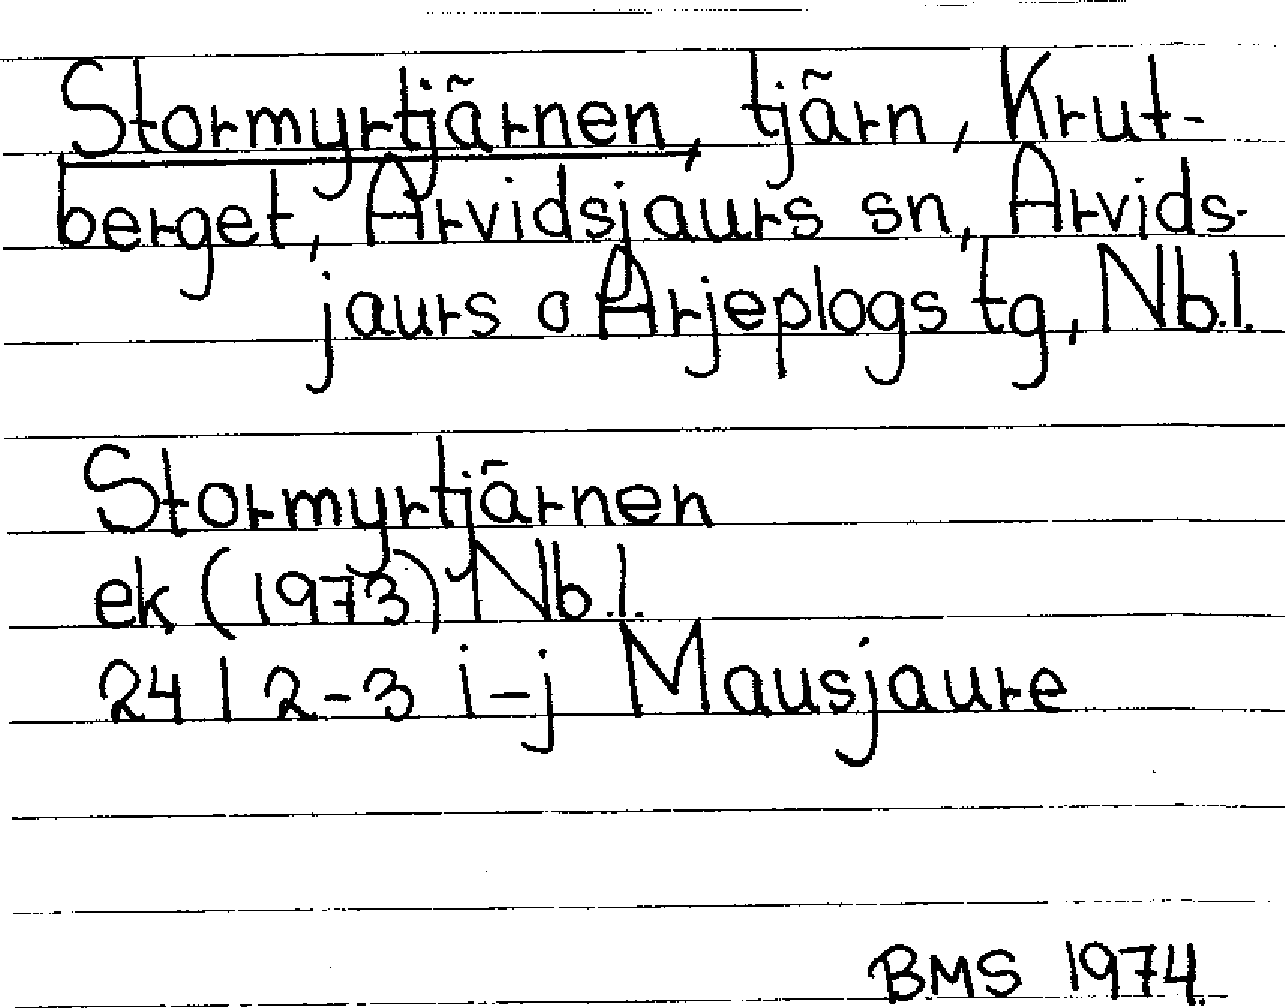 Stormyrtjärnen, tjärn, Krut-
berget, Arvidsjaurs sn, Arvids-
jaurs o Arjeplogs tg, Nb.l.
Stormyrtjärnen
ek (1973) Nb.l.
24 I 2-3 i-j Mausjaure
BMS 1974.